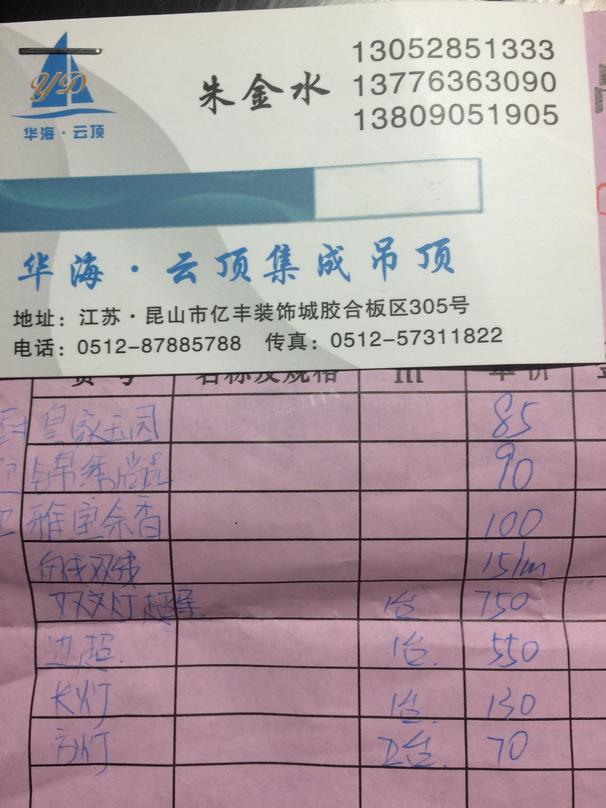 YD
华海·云顶
朱金水
13052851333
13776363090
13809051905
华海·云顶集成吊顶
地址：江苏·昆山市亿丰装饰城胶合板区305号
电话：0512-87885788 传真：0512-57311822
货号 名称及规格 m 单价
皇家王园 85
锦绣 90
雅室余香 100
双线 15/m
双灯 1台 750
边超 1台. 550
长灯 1台. 130
方灯 2台. 70